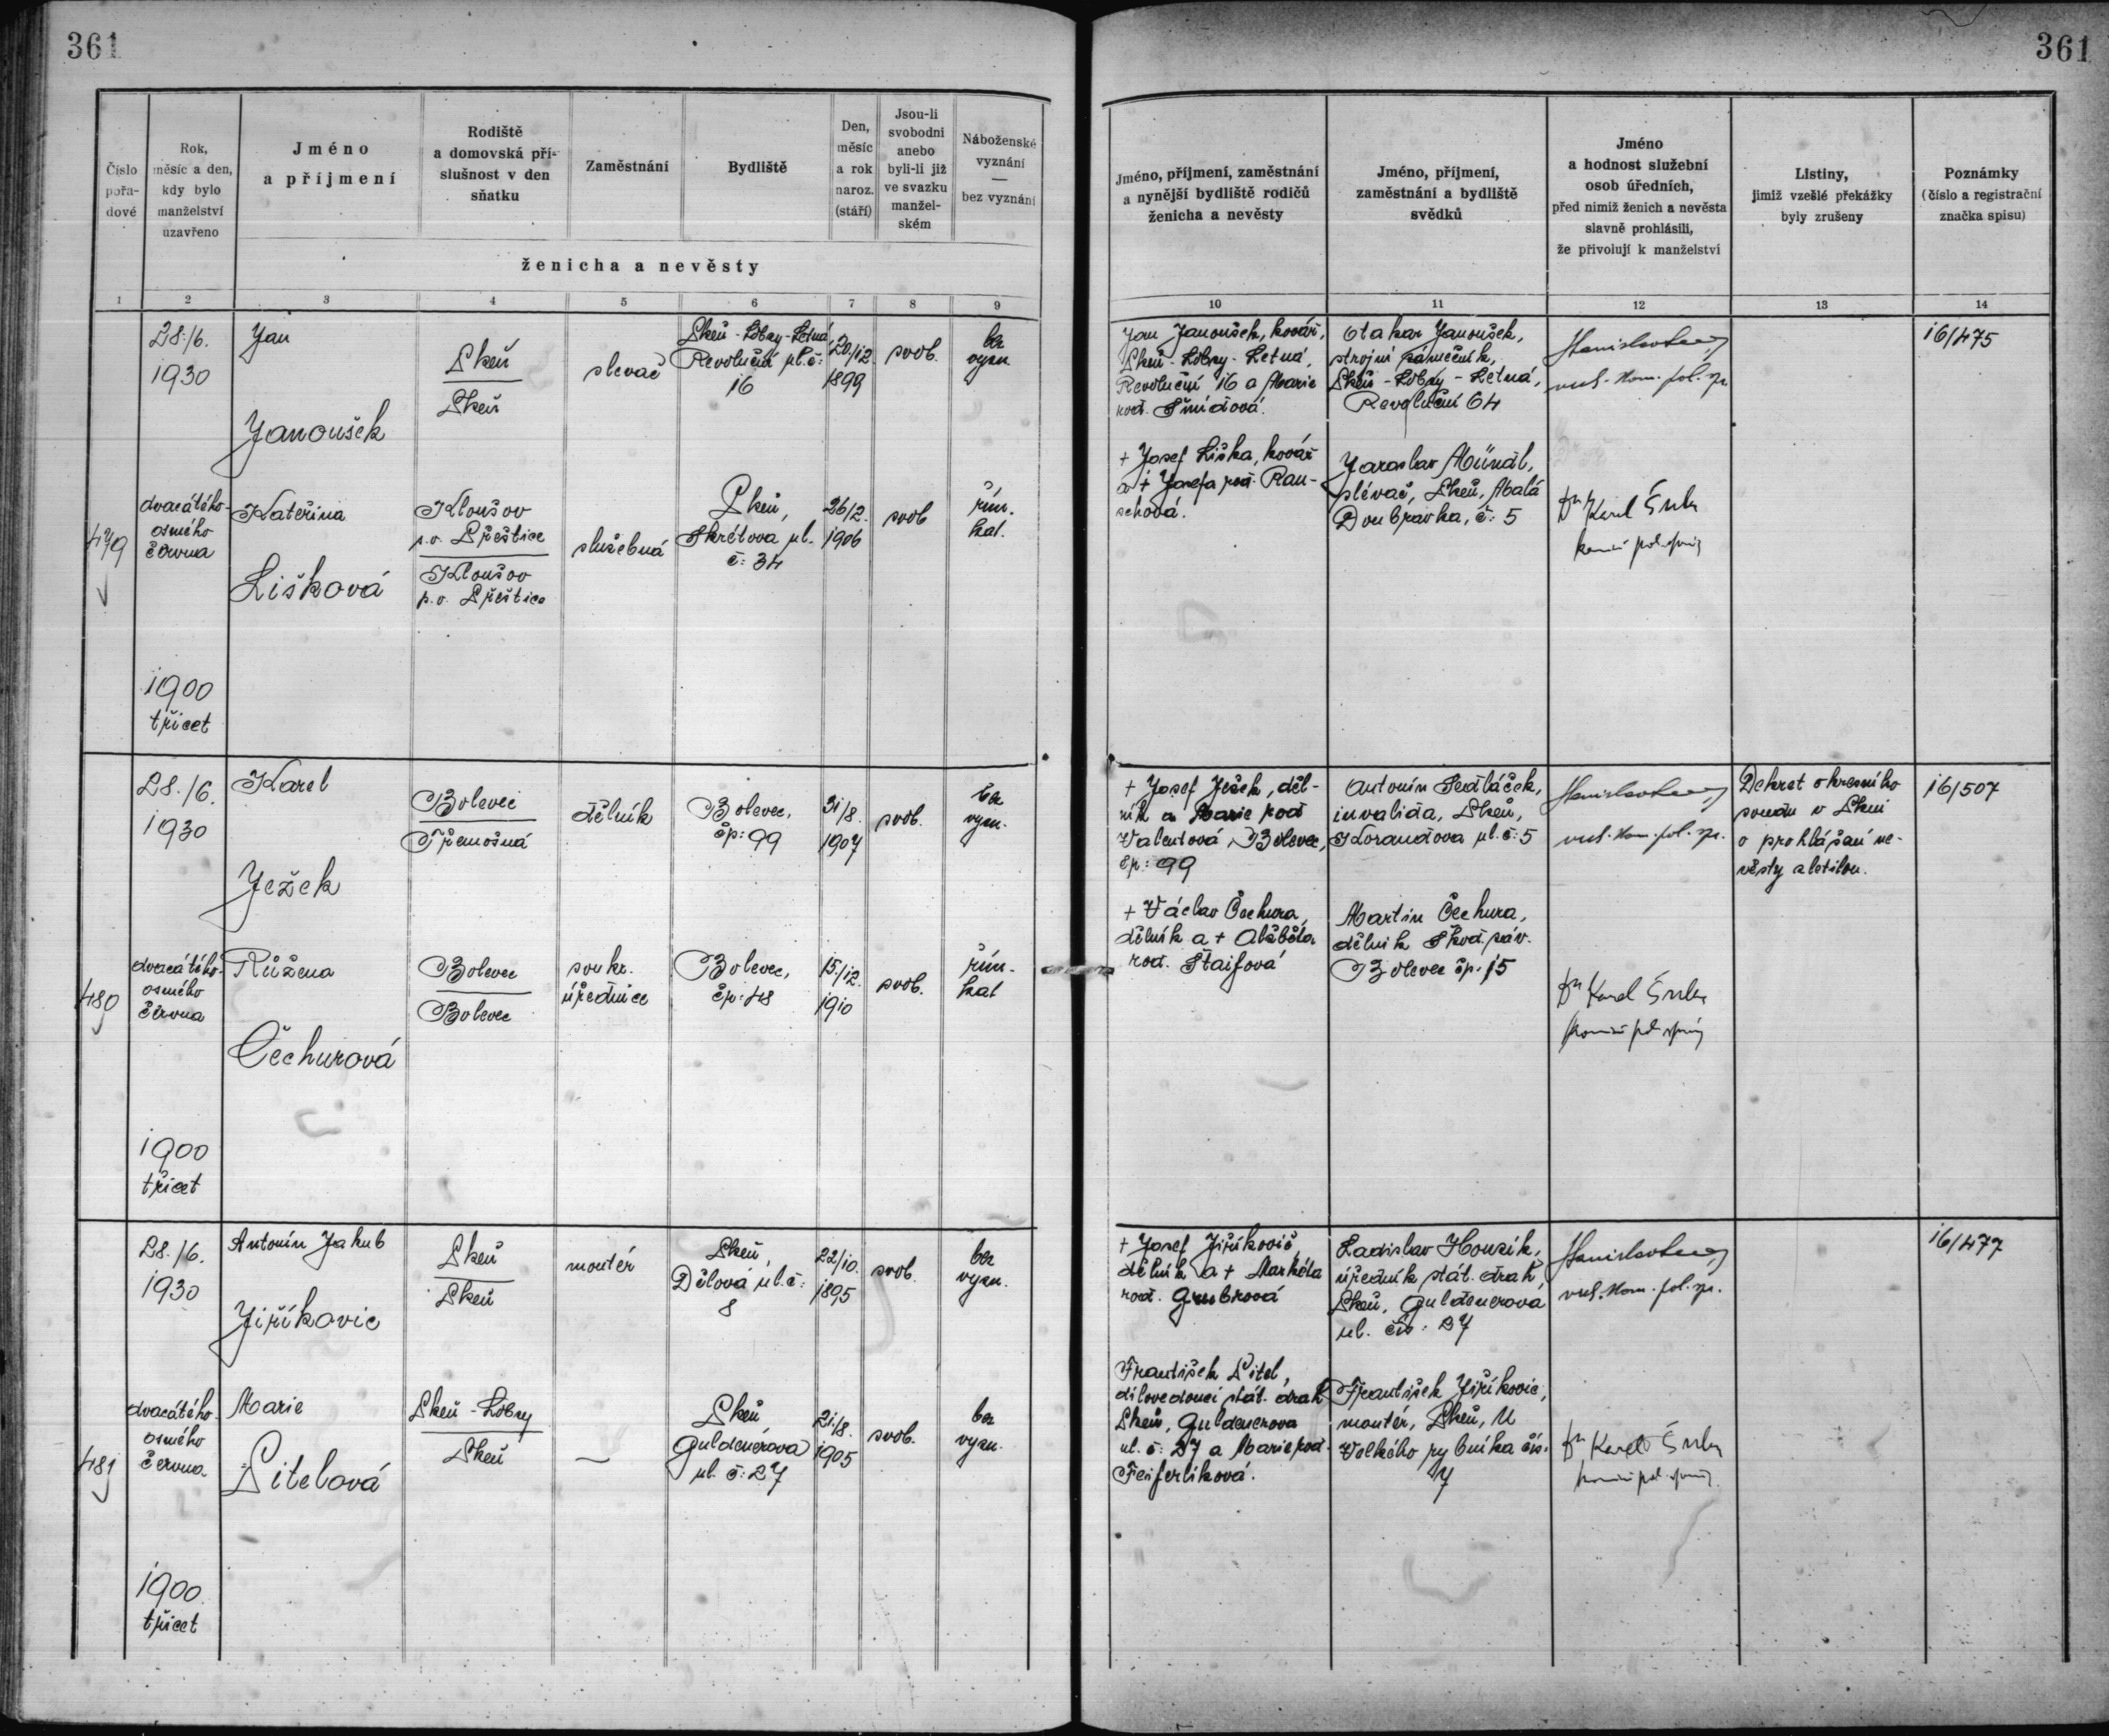 361
361
Číslo pořa-dové
Rok, měsíc a den, kdy bylo manželství uzavřeno
Jméno a příjmení
Rodiště a domovská pří-slušnost v den sňatku
Zaměstnání
Bydliště
Den, měsíc a rok naroz. (stáří)
Jsou-li svobodni anebo byli-li již ve svazku manžel-ském
Náboženské vyznání — bez vyznání
ženicha a nevěsty
Jméno, příjmení, zaměstnání a nynější bydliště rodičů ženicha a nevěsty
Jméno, příjmení, zaměstnání a bydliště svědků
Jméno a hodnost služební osob úředních, před nimiž ženich a nevěsta slavně prohlásili, že přivolují k manželství
Listiny, jimiž vzešlé překážky byly zrušeny
Poznámky (číslo a registrační značka spisu)
1 2 3 4 5 6 7 8 9
10 11 12 13 14
479
28./6.
1930
dvacátého
osmého
června
1900
třicet
Jan
Janoušek
Plzeň
Plzeň
slevač
Plzeň - Lobzy - Letná,
Revoluční ul. č:
16
20/12.
1899
svob.
bez
vyzn.
Kateřina
Lišková
Kloušov
p.o. Přeštice
Kloušov
p.o. Přeštice
služebná
Plzeň,
Skrétova ul.
č: 34
26/2.
1906
svob
řím.
kat.
Jan Janoušek, kovář,
Plzeň - Lobzy - Letná,
Revoluční 16 a Marie
roz. Šmídová.
+ Josef Liška, kovář
a + Josefa roz. Rau-
schová.
Otakar Janoušek,
strojní zámečník,
Plzeň - Lobzy - Letná,
Revoluční 64
Jaroslav Mündl,
slévač, Plzeň, Malá
Doubravka, č: 5
vrch. kom. pol. spr.
Dr Karel
16/475
480
28./6.
1930
dvacátého
osmého
června
1900
třicet
Karel
Ježek
Bolevec
Třemošná
dělník
Bolevec,
čp: 99
31/8.
1907
svob.
bez
vyzn.
Růžena
Čechurová
Bolevec
Bolevec
soukr.
úřednice
Bolevec,
čp: 48
15./12.
1910
svob.
řím.
kat
+ Josef Ježek, děl-
ník a Marie roz
Valentová, Bolevec,
čp: 99
+ Václav Čechura,
dělník a + Alžběta
roz. Štaifová
Antonín Sedláček,
invalida, Plzeň,
Korandova ul. č: 5
Martin Čechura,
dělník Škod. záv.
Bolevec čp: 15
vrch. kom. pol. spr.
Dr Karel
Dekret okresního
soudu v Plzni
o prohlášení ne-
věsty zletilou.
16/507
481
28./6.
1930
dvacátého
osmého
června
1900
třicet
Antonín Jakub
Jiříkovic
Plzeň
Plzeň
montér
Plzeň,
Dělová ul. č:
8
22/10.
1895
svob.
bez
vyzn.
Marie
Pitelová
Plzeň - Lobzy
Plzeň
—
Plzeň
Guldenerova
ul. č: 27
21/8.
1905
svob.
bez
vyzn.
+ Josef Jiříkovič,
dělník a + Markéta
roz. Grubrová
František Pitel,
dílovedoucí stát. drah
Plzeň, Guldenerova
ul. č: 27 a Marie roz.
Feiferliková.
Ladislav Houzík,
úředník stát. drah
Plzeň, Guldenerova
ul. čís: 27
František Jiříkovic,
montér, Plzeň, U
Velkého rybníka čís.
7
vrch. kom. pol. spr.
Dr Karel
16/477